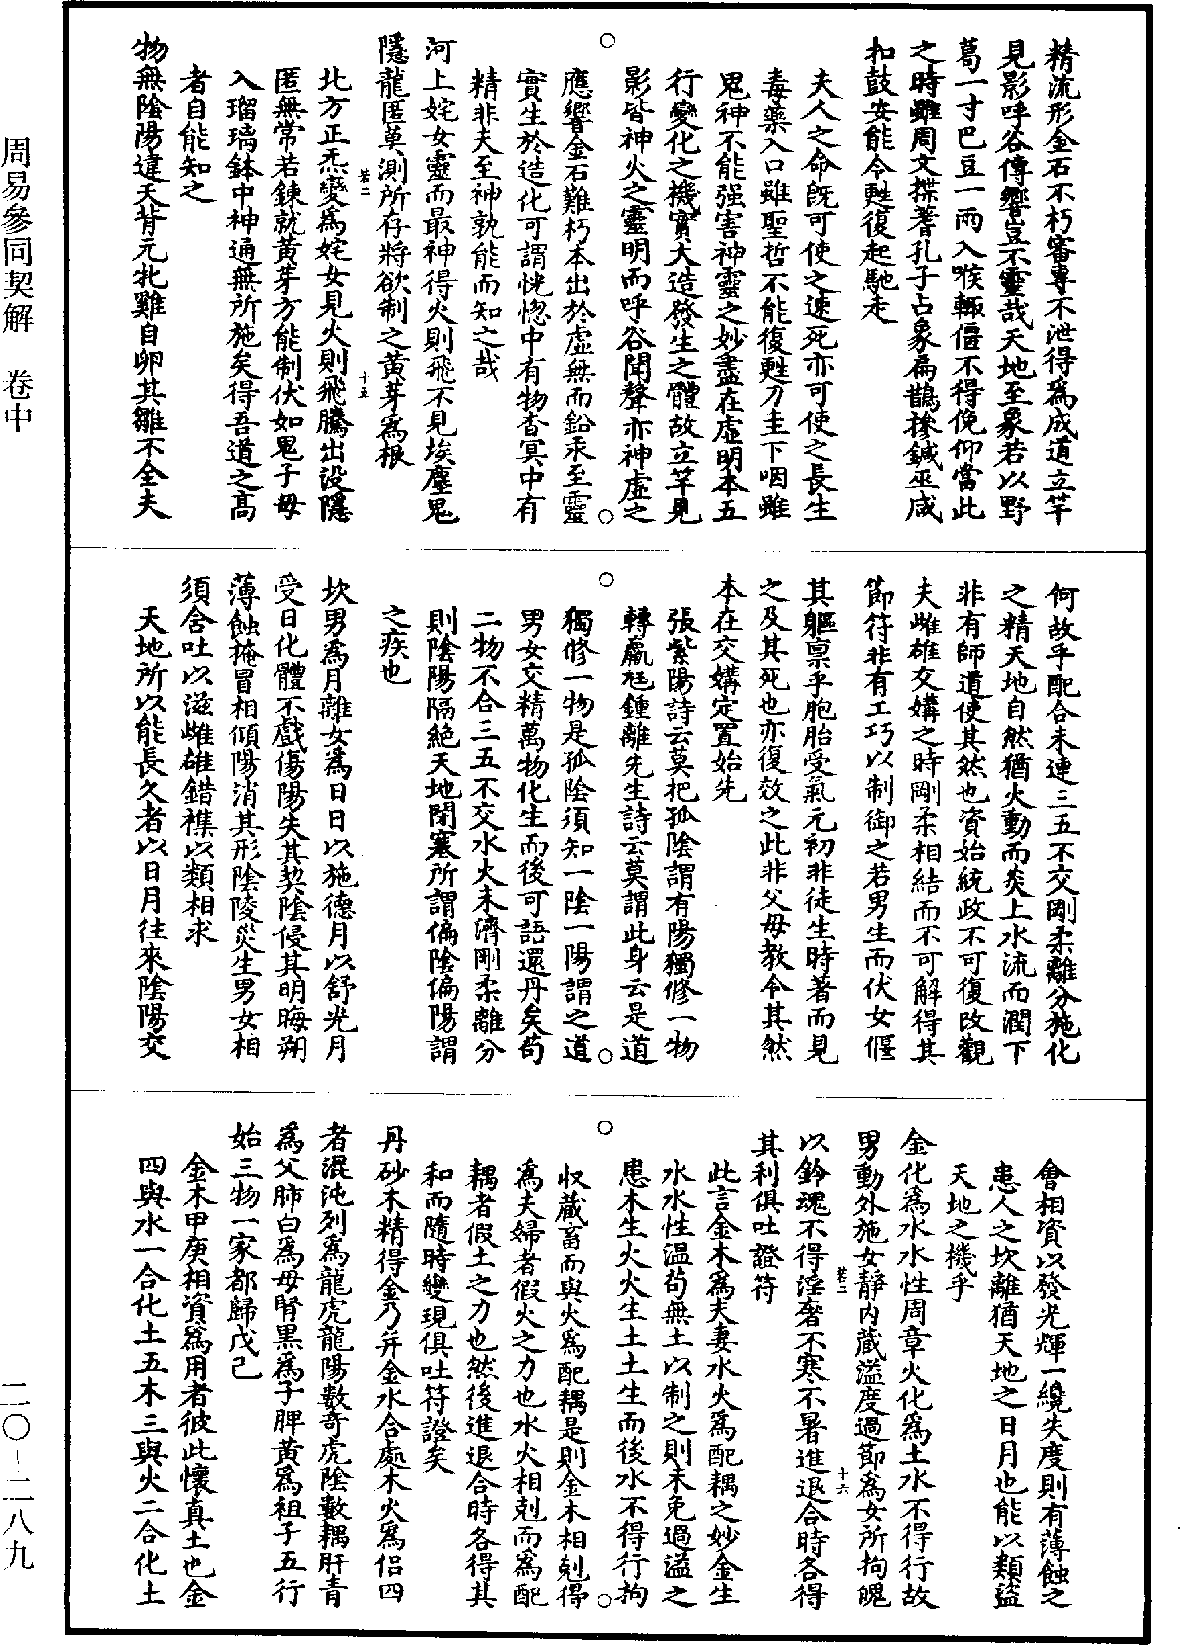 周易參同契解 卷中
精流形金石不朽審專不泄得爲成道立竿
見影呼谷傳響豈不靈哉天地至象若以野
葛一寸巴豆一兩入喉輒僵不得俛仰當此
之時雖周文揲蓍孔子占象扁鵲摻鍼巫咸
扣鼓安能令甦復起馳走
夫人之命既可使之速死亦可使之長生
毒藥入口雖聖哲不能復甦刀圭下咽雖
鬼神不能强害神靈之妙盡在虛明本五
行變化之機實大造發生之體故立竿見
影皆神火之靈明而呼谷聞聲亦神虛之
應響金石難朽本出於虛無而鉛汞至靈
實生於造化可謂恍惚中有物杳冥中有
精非夫至神孰能而知之哉
河上姹女靈而最神得火則飛不見埃塵鬼
隱龍匿莫測所存將欲制之黃芽爲根
北方正炁變爲姹女見火則飛騰出没隱
匿無常若鍊就黃芽方能制伏如鬼子母
入瑠璃鉢中神通無所施矣得吾道之高
者自能知之
物無陰陽違天背元牝雞自卵其雛不全夫
若二
十五
何故乎配合未連三五不交剛柔離分施化
之精天地自然猶火動而炎上水流而潤下
非有師道使其然也資始統政不可復改觀
夫雌雄交媾之時剛柔相結而不可解得其
節符非有工巧以制御之若男生而伏女偃
其軀禀乎胞胎受氣元初非徒生時著而見
之及其死也亦復效之此非父母教令其然
本在交媾定置始先
張紫陽詩云莫把孤陰謂有陽獨修一物
轉羸尫鍾離先生詩云莫謂此身云是道
獨修一物是孤陰須知一陰一陽謂之道
男女交精萬物化生而後可語還丹矣苟
二物不合三五不交水火未濟剛柔離分
則陰陽隔絶天地閉塞所謂偏陰偏陽謂
之疾也
坎男爲月離女爲日日以施德月以舒光月
受日化體不戲傷陽失其契陰侵其明晦朔
薄蝕掩冒相傾陽消其形陰陵災生男女相
須含吐以滋雌雄錯襍以類相求
天地所以能長久者以日月往來陰陽交
會相資以發光輝一纔失度則有薄蝕之
患人之坎離猶天地之日月也能以類盜
天地之機乎
金化爲水水性周章火化爲土水不得行故
男動外施女靜内藏溢度過節爲女所拘魄
以鈐魂不得淫奢不寒不暑進退合時各得
其利俱吐證符
若三
十六
此言金木爲夫妻水火爲配耦之妙金生
水水性温苟無土以制之則未免過溢之
患木生火火生土土生而後水不得行拘
收藏畜而與火爲配耦是則金木相剋得
爲夫婦者假火之力也水火相剋而爲配
耦者假土之力也然後進退合時各得其
和而隨時變現俱吐符證矣
丹砂木精得金乃并金水合處木火爲侣四
者混沌列爲龍虎龍陽數奇虎陰數耦肝青
爲父肺白爲母腎黑爲子脾黃爲祖子五行
始三物一家都歸戊己
金木甲庚相資爲用者彼此懷真土也金
四與水一合化土五木三與火二合化土
二〇－二八九